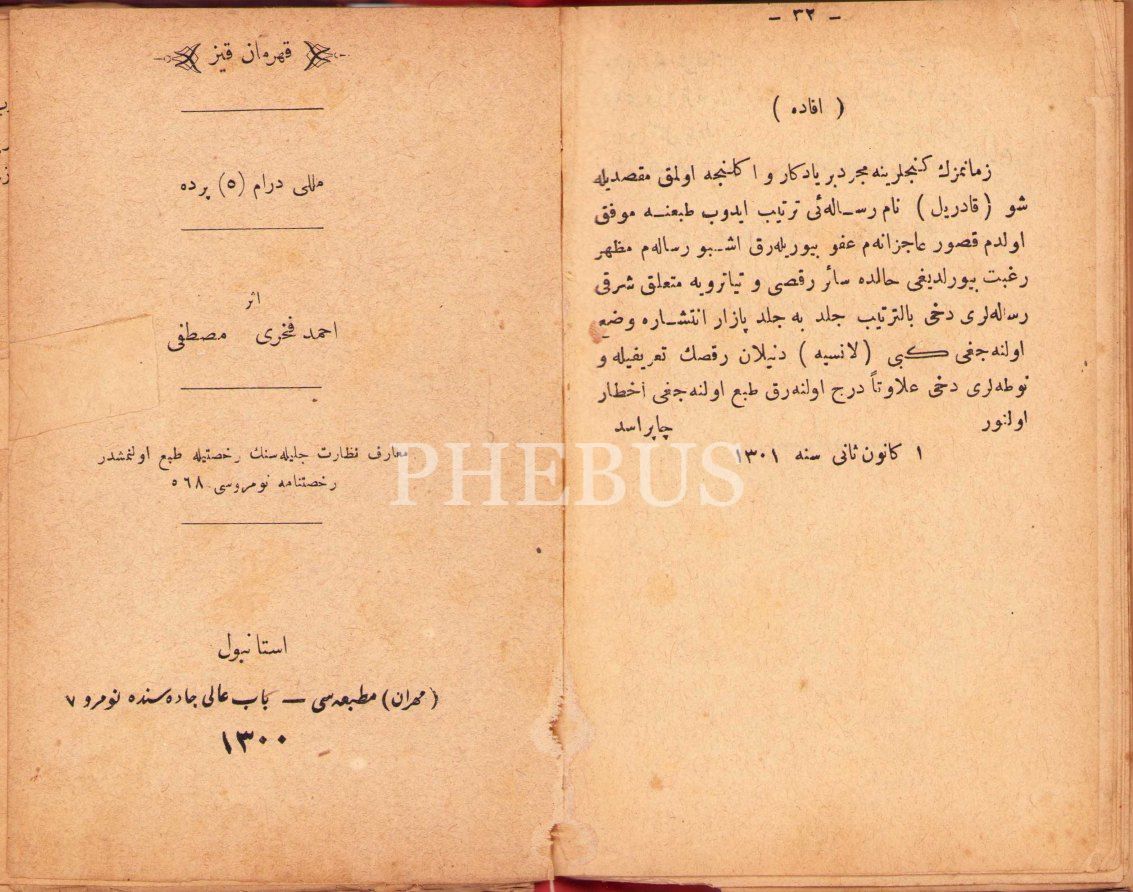 - ٣٢ -
( افاده )
زمانمزك كنجلرينه مجرد بر يادكار و اكلنجه اولمق مقصديله
شو ( قادريل ) نام رساله‌ئى ترتيب ايدوب طبعنه موفق
اولدم قصور عاجزانه‌م عفو بيوريله‌رق اشبو رساله‌م مظهر
رغبت بيورلديغى حالده سائر رقصى و تياترويه متعلق شرقى
رساله‌لرى دخى بالترتيب جلد به جلد پازار انتشاره وضع
اولنه‌جغى كبى ( لانسيه ) دنيلان رقصك تعريفيله و
نوطه‌لرى دخى علاوتاً درج اولنه‌رق طبع اولنه‌جغى اخطار
اولنور چاپراسد
١ كانون ثانى سنه ١٣٠١
قهرمان قيز
مللى درام (٥) پرده
اثر
احمد فخرى مصطفى
معارف نظارت جليله‌سنك رخصتيله طبع اولنمشدر
رخصتنامه نومروسى ٥٦٨
استانبول
(مهران) مطبعه‌سى — باب عالى جاده‌سنده نومرو ٧
١٣٠٠
PHEBUS